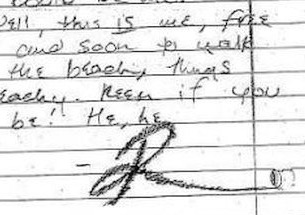 ell, this IS me, free
and soon to walk
the beach, things
eachy. Keen if you
be! He, he